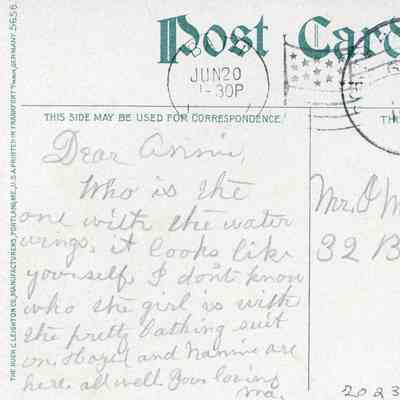 Post Card
JUN 20
1-30P
THIS SIDE MAY BE USED FOR CORRESPONDENCE.
TH
Dear Annie,
Who is the
one with the water
wings, it looks like
yourself, I don't know
who the girl is with
the pretty bathing suit
on. Hazel and Nannie are
here. all well. Your loving
Ma.
Mr. O M
32 B
2023
THE HUGH C. LEIGHTON CO., MANUFACTURERS, PORTLAND, ME., U.S.A. PRINTED IN FRANKFORT ᵒ/MAIN, GERMANY. 5656.